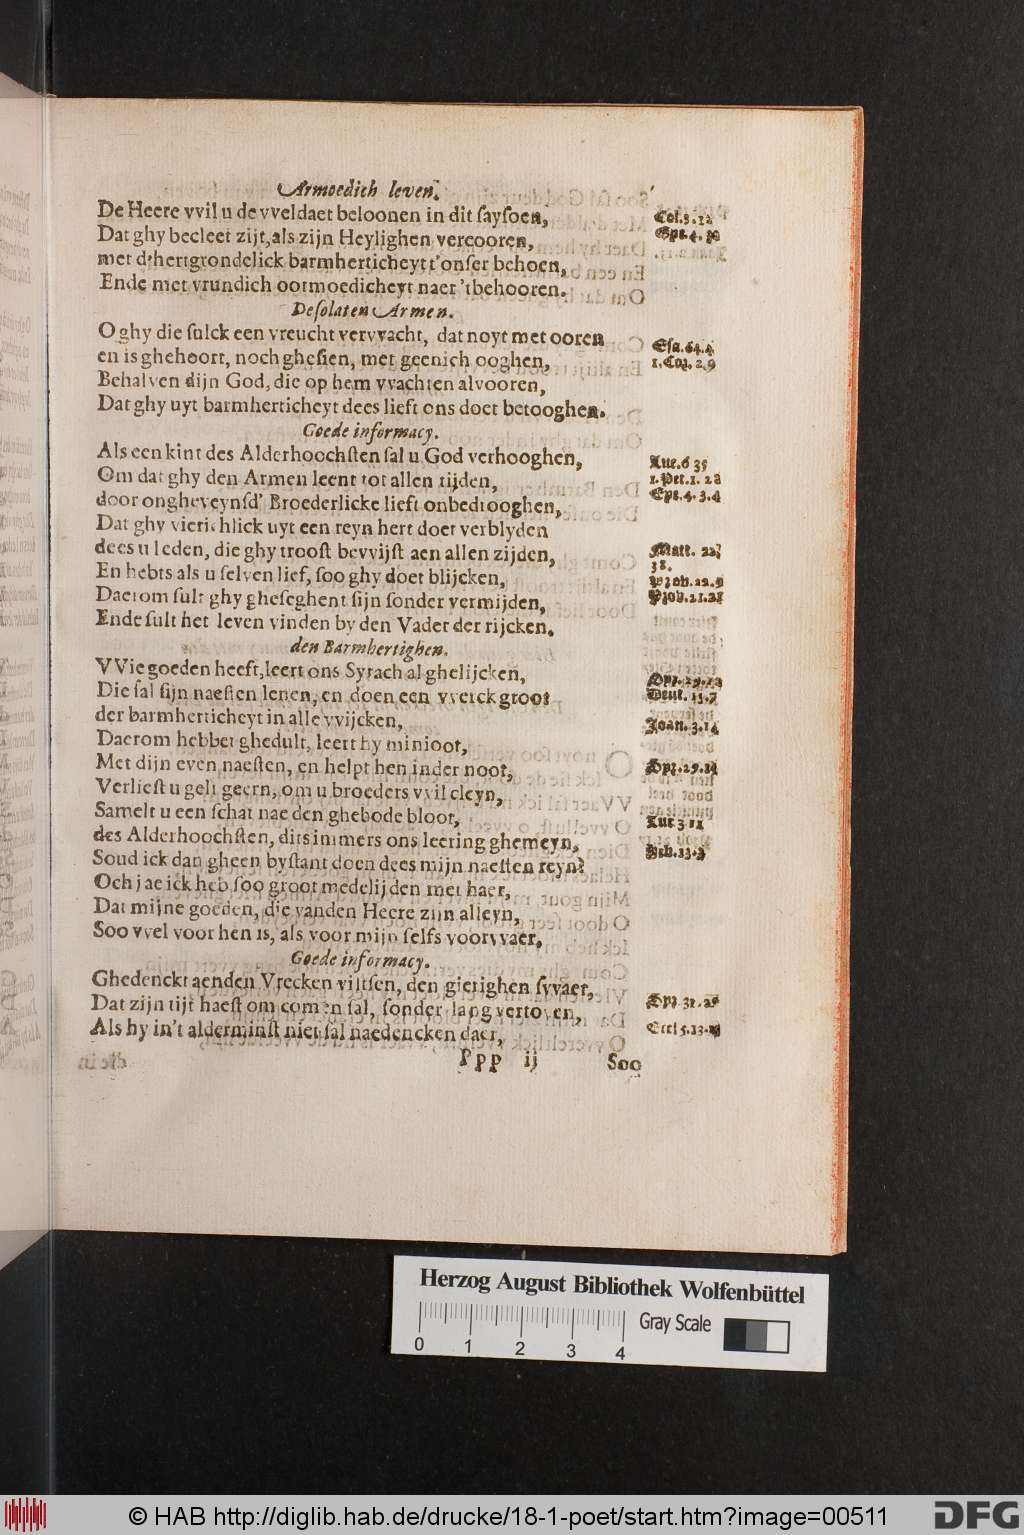 Armoedich leven.
De Heere vvil u de vveldaet beloonen in dit saysoen,
Col.3.12
Dat ghy becleet zijt, als zijn Heylighen vercooren,
met d'hertgrondelick barmherticheyt t'onser behoen,
Ende met vrundich ootmoedicheyt naer 'tbehooren.
Desolaten Armen.
O ghy die sulck een vreucht vervvacht, dat noyt met ooren
Esa.64.4
en is ghehoort, noch ghesien, met geenich ooghen,
1.Cor.2.9
Behalven dijn God, die op hem vvachten alvooren,
Dat ghy uyt barmherticheyt dees lieft ons doet betooghen.
Goede informacy.
Als een kint des Alderhoochsten sal u God verhooghen,
Luc.6 35
Om dat ghy den Armen leent tot allen tijden,
1.Pet.1.22
door ongheveynsd' Broederlicke lieft onbedrooghen,
Dat ghy vierichlick uyt een reyn hert doet verblyden
dees u leden, die ghy troost bevvijst aen allen zijden,
Matt. 22
38.
En hebts als u selven lief, soo ghy doet blijcken,
Prob.22.9
Daerom sult ghy gheseghent sijn sonder vermijden,
Prob.21.21
Ende sult het leven vinden by den Vader der rijcken.
den Barmhertighen.
VVie goeden heeft, leert ons Syrach al ghelijcken,
Die sal sijn naesten lenen, en doen een vverck groot
Deut. 15.7
der barmherticheyt in alle vvijcken,
Joan.3.14
Daerom hebbet ghedult, leert hy minioot,
Met dijn even naesten, en helpt hen inder noot,
Verliest u gelt geern, om u broeders vvil cleyn,
Samelt u een schat nae den ghebode bloot,
Luc 3 11
des Alderhoochsten, dits immers ons leering ghemeyn,
Heb.13.3
Soud ick dan gheen bystant doen dees mijn naesten reyn?
Och jae ick heb soo groot medelijden met haer,
Dat mijne goeden, die vanden Heere zijn alleyn,
Soo vvel voor hen is, als voor mijn selfs voorvvaer.
Goede informacy.
Ghedenckt aenden Vrecken viltsen, den gierighen svvaer,
Dat zijn tijt haest om comen sal, sonder lang vertoven,
Als hy in't alderminst niet sal naedencken daer,
Eccl 5.13
Ppp ij
Soo
Herzog August Bibliothek Wolfenbüttel
Gray Scale
0 1 2 3 4
© HAB http://diglib.hab.de/drucke/18-1-poet/start.htm?image=00511
DFG